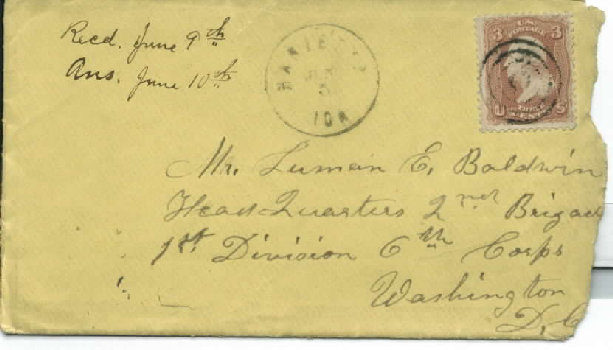 Recd. June 9th
Ans. June 10th
IOA
3 U.S. 3
POSTAGE
U S
Mr. Luman E. Baldwin
Head Quarters 2nd Brigad
1st Division 6th Corps
Washington
D.C